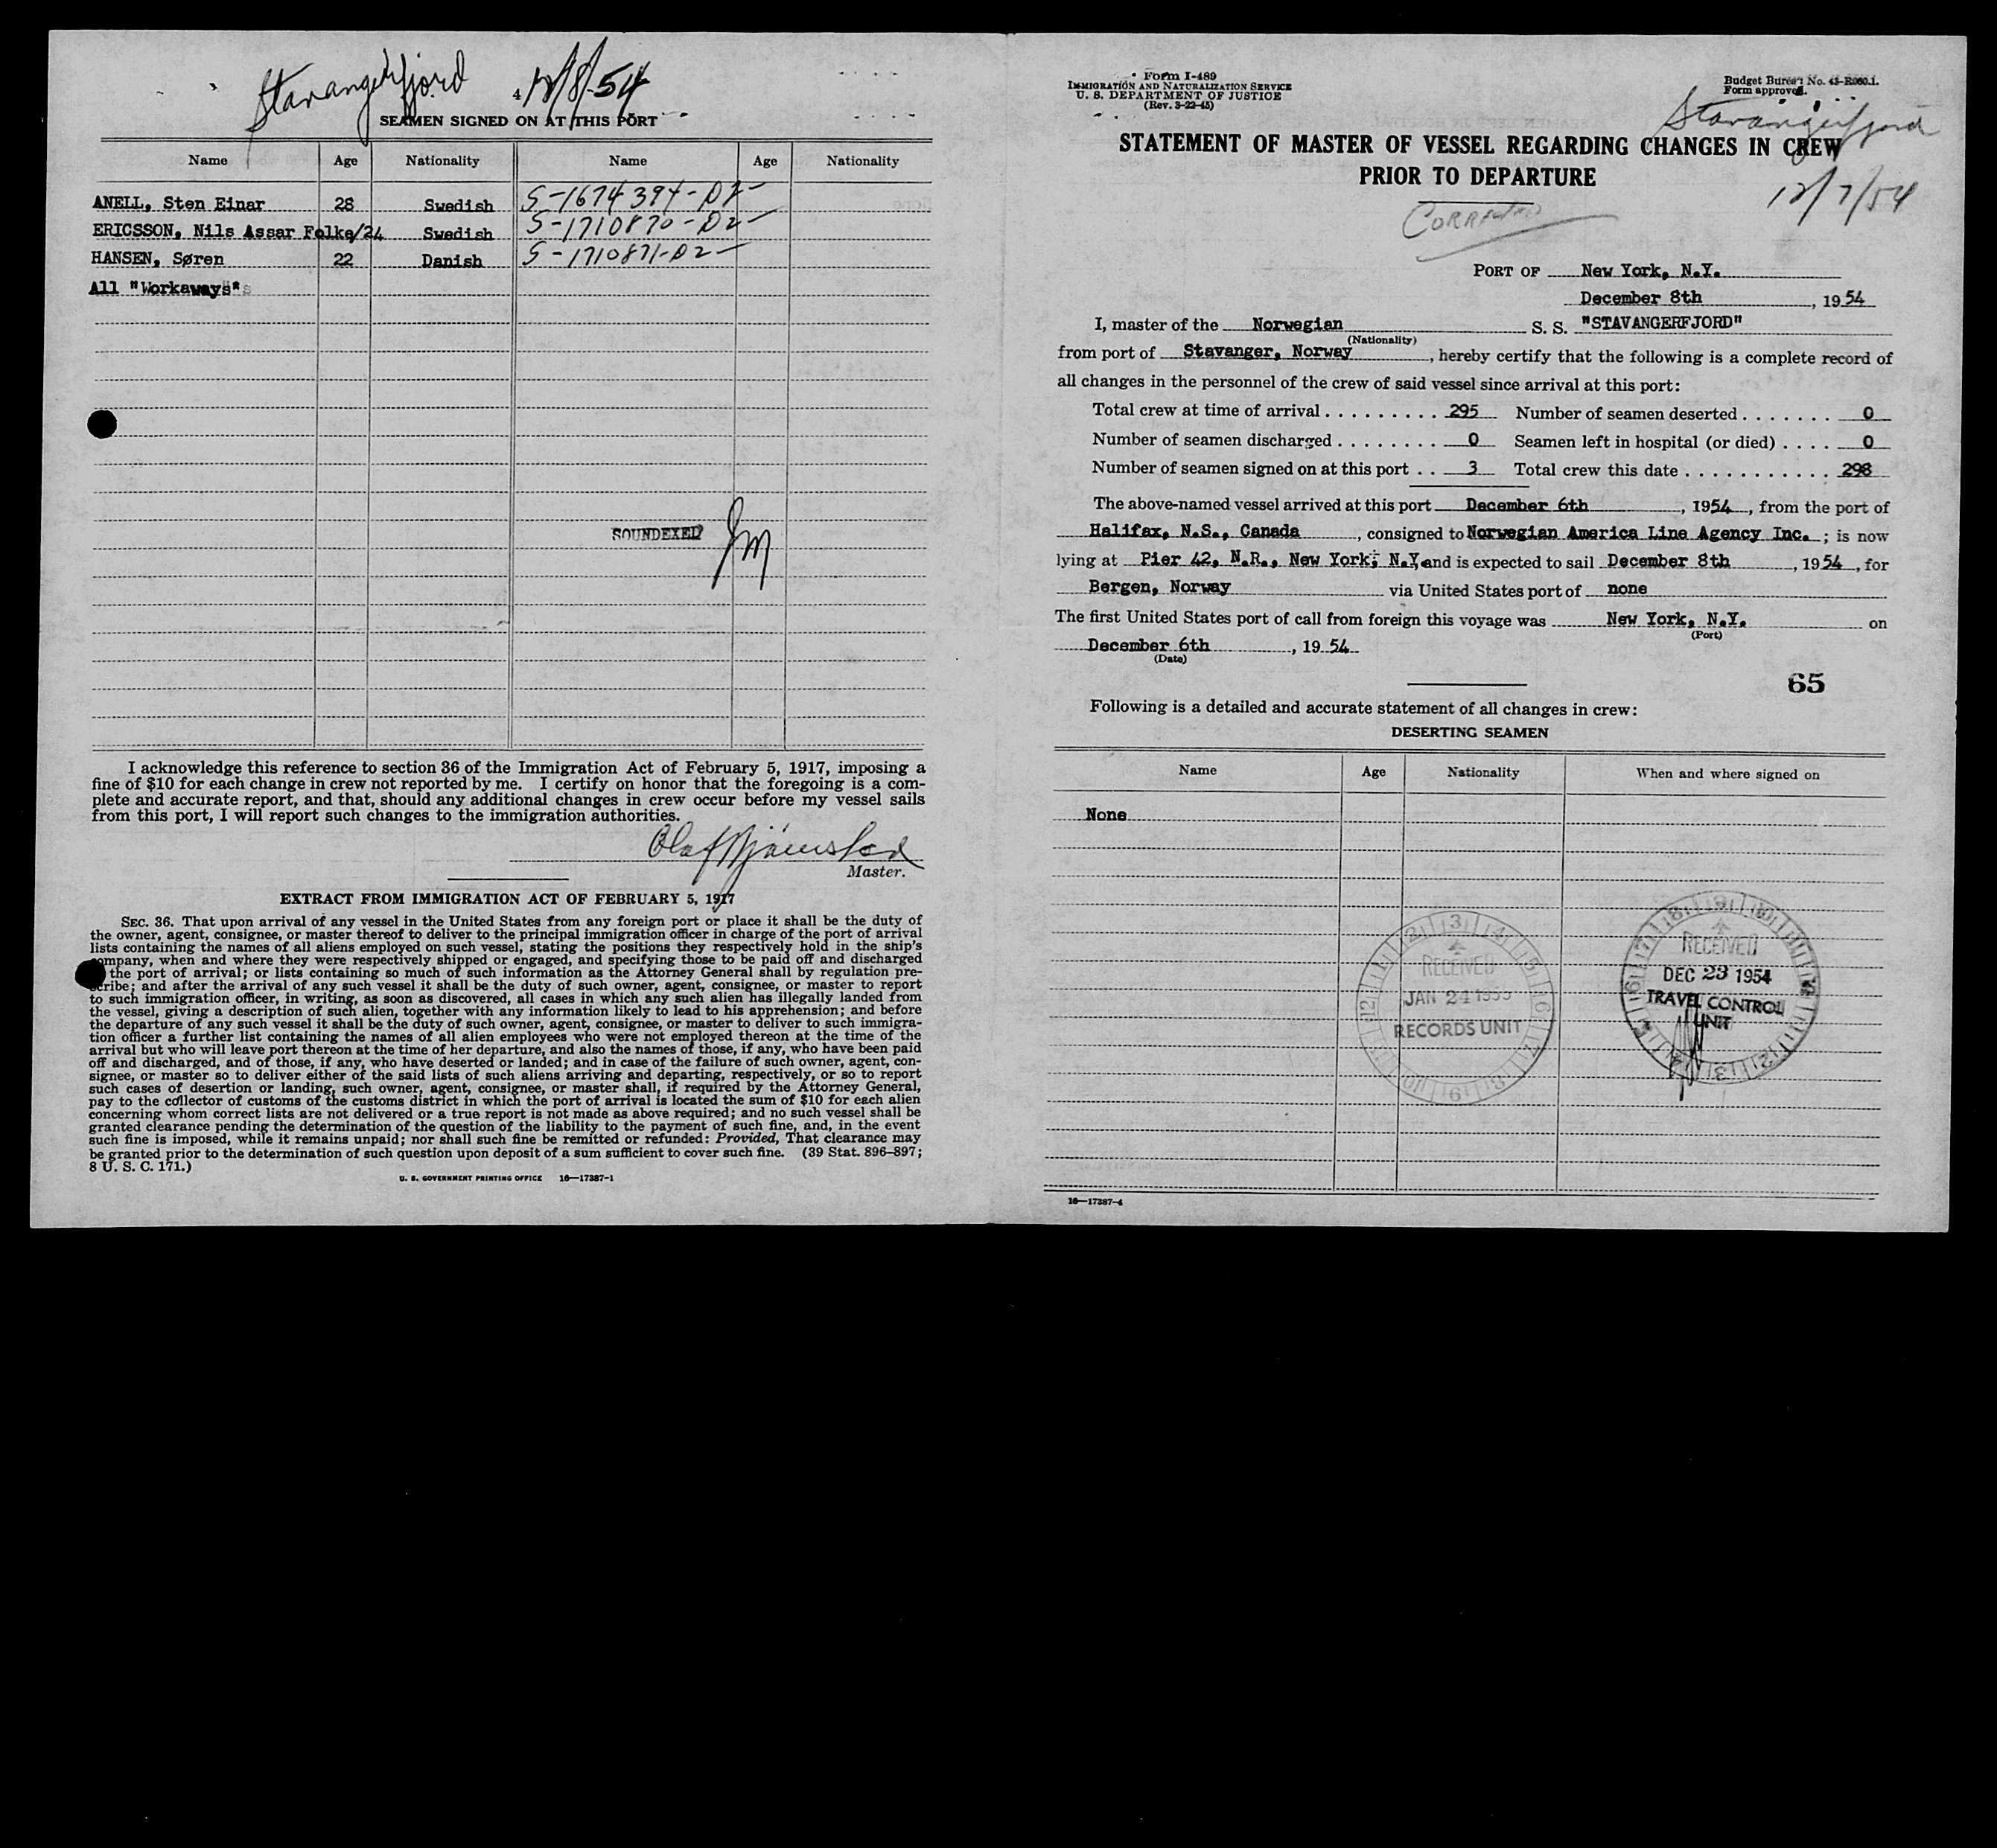 Stavangerfjord
12/8/54
4
SEAMEN SIGNED ON AT THIS PORT
Name Age Nationality Name Age Nationality
ANELL, Sten Einar 28 Swedish S-1674394-D2-
ERICSSON, Nils Assar Folke/24 Swedish S-1710870-D2-
HANSEN, Søren 22 Danish S-1710871-D2-
All "Workaways"
SOUNDEXED
I acknowledge this reference to section 36 of the Immigration Act of February 5, 1917, imposing a
fine of $10 for each change in crew not reported by me. I certify on honor that the foregoing is a com-
plete and accurate report, and that, should any additional changes in crew occur before my vessel sails
from this port, I will report such changes to the immigration authorities.
Master.
EXTRACT FROM IMMIGRATION ACT OF FEBRUARY 5, 1917
SEC. 36. That upon arrival of any vessel in the United States from any foreign port or place it shall be the duty of
the owner, agent, consignee, or master thereof to deliver to the principal immigration officer in charge of the port of arrival
lists containing the names of all aliens employed on such vessel, stating the positions they respectively hold in the ship's
company, when and where they were respectively shipped or engaged, and specifying those to be paid off and discharged
the port of arrival; or lists containing so much of such information as the Attorney General shall by regulation pre-
scribe; and after the arrival of any such vessel it shall be the duty of such owner, agent, consignee, or master to report
to such immigration officer, in writing, as soon as discovered, all cases in which any such alien has illegally landed from
the vessel, giving a description of such alien, together with any information likely to lead to his apprehension; and before
the departure of any such vessel it shall be the duty of such owner, agent, consignee, or master to deliver to such immigra-
tion officer a further list containing the names of all alien employees who were not employed thereon at the time of the
arrival but who will leave port thereon at the time of her departure, and also the names of those, if any, who have been paid
off and discharged, and of those, if any, who have deserted or landed; and in case of the failure of such owner, agent, con-
signee, or master so to deliver either of the said lists of such aliens arriving and departing, respectively, or so to report
such cases of desertion or landing, such owner, agent, consignee, or master shall, if required by the Attorney General,
pay to the collector of customs of the customs district in which the port of arrival is located the sum of $10 for each alien
concerning whom correct lists are not delivered or a true report is not made as above required; and no such vessel shall be
granted clearance pending the determination of the question of the liability to the payment of such fine, and, in the event
such fine is imposed, while it remains unpaid; nor shall such fine be remitted or refunded: Provided, That clearance may
be granted prior to the determination of such question upon deposit of a sum sufficient to cover such fine. (39 Stat. 896–897;
8 U. S. C. 171.)
U. S. GOVERNMENT PRINTING OFFICE 16—17387-1
Form I-489
IMMIGRATION AND NATURALIZATION SERVICE
U. S. DEPARTMENT OF JUSTICE
(Rev. 3-22-45)
Budget Bureau No. 43-R060.1.
Form approved.
Stavangerfjord
STATEMENT OF MASTER OF VESSEL REGARDING CHANGES IN CREW
PRIOR TO DEPARTURE
12/7/54
CORRECTED
PORT OF New York, N.Y.
December 8th, 1954
I, master of the Norwegian S. S. "STAVANGERFJORD"
(Nationality)
from port of Stavanger, Norway, hereby certify that the following is a complete record of
all changes in the personnel of the crew of said vessel since arrival at this port:
Total crew at time of arrival . . . . . . . . . 295 Number of seamen deserted . . . . . . . 0
Number of seamen discharged . . . . . . . . 0 Seamen left in hospital (or died) . . . . 0
Number of seamen signed on at this port . . 3 Total crew this date . . . . . . . . . . . . 298
The above-named vessel arrived at this port December 6th, 1954, from the port of
Halifax, N.S., Canada, consigned to Norwegian America Line Agency Inc.; is now
lying at Pier 42, N.R., New York, N.Y. and is expected to sail December 8th, 1954, for
Bergen, Norway via United States port of none
The first United States port of call from foreign this voyage was New York, N.Y. on
(Port)
December 6th, 1954
(Date)
65
Following is a detailed and accurate statement of all changes in crew:
DESERTING SEAMEN
Name Age Nationality When and where signed on
None
RECEIVED
JAN 24 1955
RECORDS UNIT
RECEIVED
DEC 23 1954
TRAVEL CONTROL
UNIT
16—17387-4